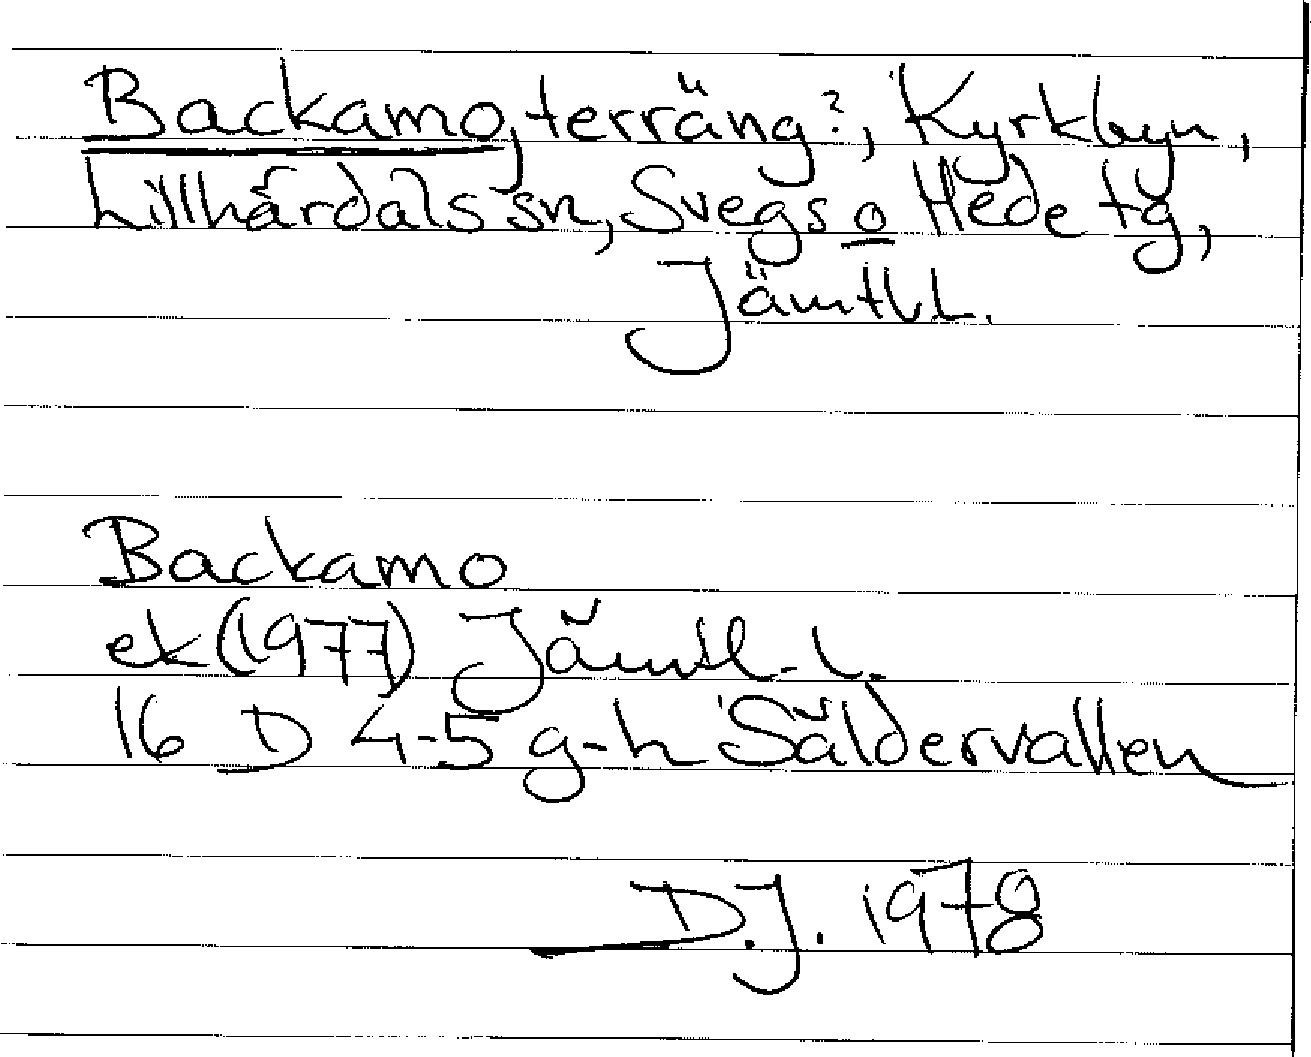 Backamo, terräng?, Kyrkbyn,
Lillhärdals sn, Svegs o Hede tg,
Jämtl.l.
Backamo
ek (1977) Jämtl.l.
16 D 4-5 g-h Säldervallen
D.J. 1978